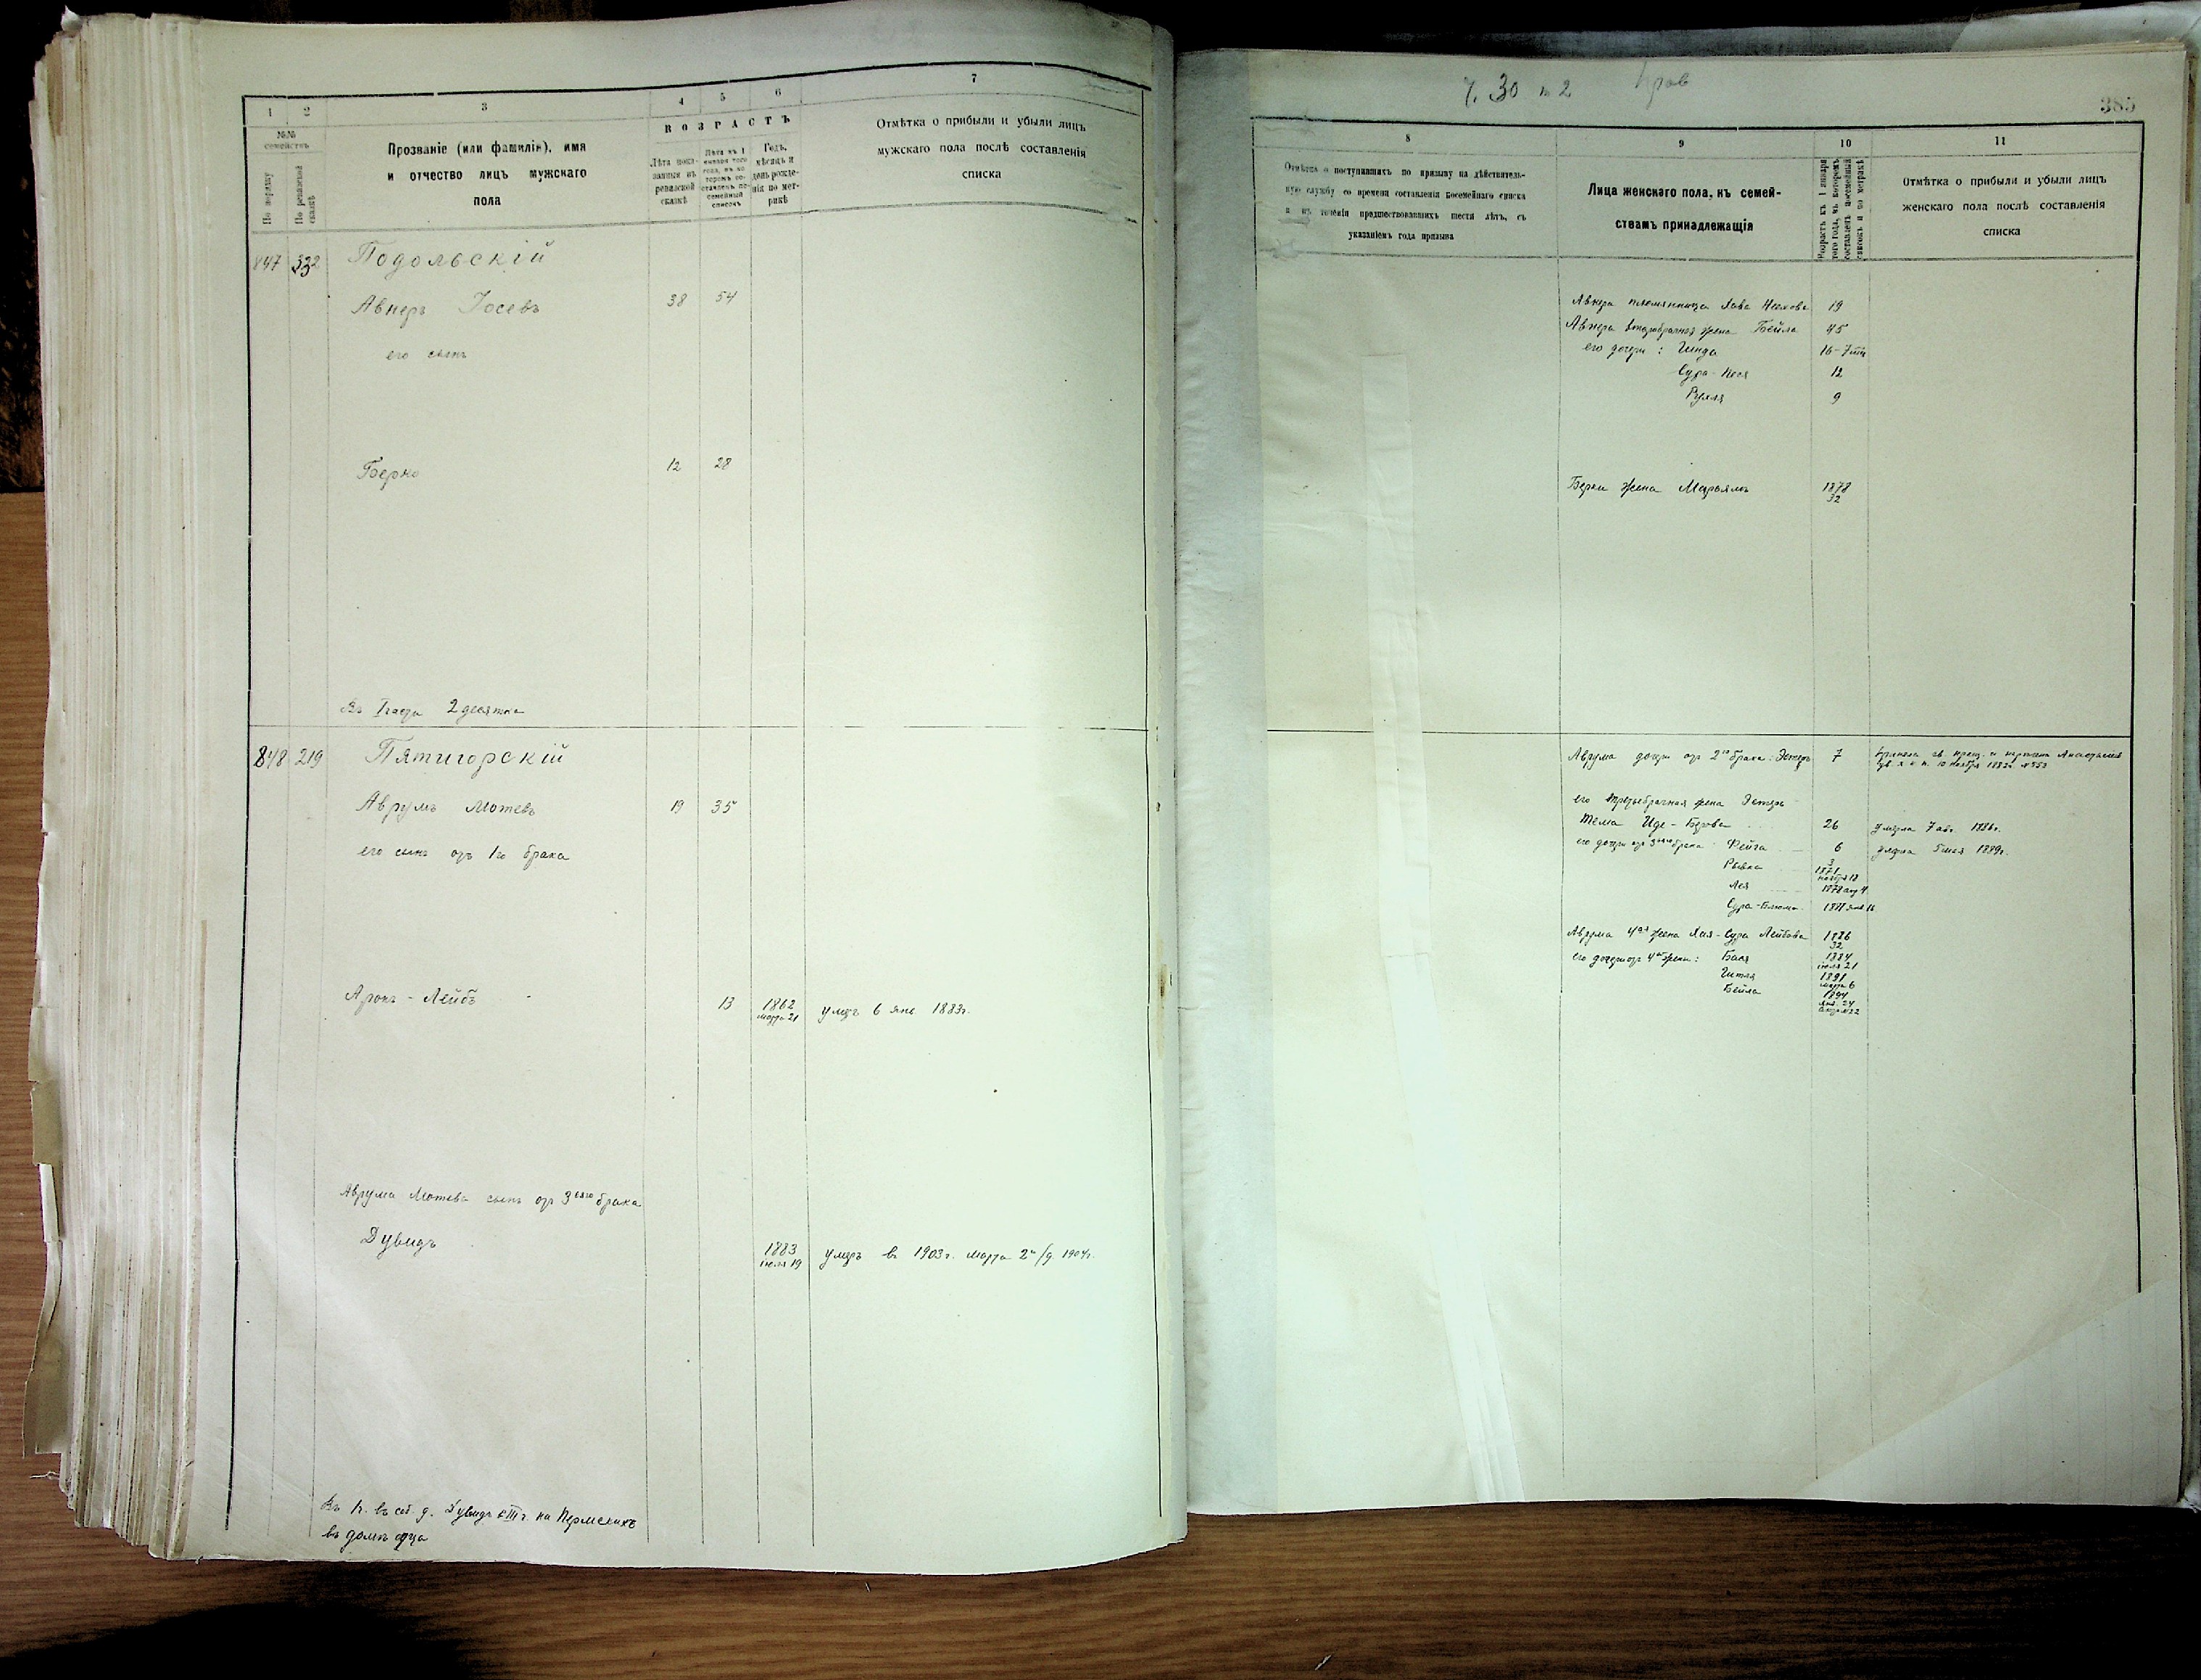 1
2
3
4
5
6
7
№№ семействъ
По порядку
По ревизской сказкѣ
Прозваніе (или фамилія), имя
и отчество лицъ мужскаго
пола
ВОЗРАСТЪ
Лѣта пока-
занныя въ
ревизской
сказкѣ
Лѣта къ 1
января того
года, въ ко-
торомъ со-
ставленъ по-
семейный
списокъ
Годъ,
мѣсяцъ и
день рожде-
нія по мет-
рикѣ
Отмѣтка о прибыли и убыли лицъ
мужскаго пола послѣ составленія
списка
847 332 Подольскій
Авнеръ Іосевъ 38 54
его сынъ
Берко 12 28
Въ I части 2 десятка
848 219 Пятигорскій
Аврумъ Мотевъ 19 35
его сынъ отъ 1го брака
Аронъ-Лейбъ 13 1862
марта 21
умеръ 6 янв. 1883г.
Аврума Мотева сынъ отъ 3 брака
Дувидъ 1883
іюля 19
умеръ въ 1903г. марта 1904г.
Дувидъ на Пермскихъ
въ домѣ отца
Ч. 30 2
385
8
9
10
11
Отмѣтка о поступившихъ по призыву на дѣйствитель-
ную службу со времени составленія посемейнаго списка
и въ теченіи предшествовавшихъ шести лѣтъ, съ
указаніемъ года призыва
Лица женскаго пола, къ семей-
ствамъ принадлежащія
Возрастъ къ 1 января
того года, въ которомъ
составленъ посемейный
списокъ и по метрикѣ
Отмѣтка о прибыли и убыли лицъ
женскаго пола послѣ составленія
списка
Авнера племянница Хава 19
Авнера второбрачная жена Бейла 45
его дочери: Гинда 16
Сура-Неся 12
Рухля 9
Берки жена Марьямъ 1878
32
Аврума дочь отъ 2го брака: Эстеръ 7
его третьебрачная жена Эстеръ
Тема Иде-Берова 26 умерла 7 авг. 1886г.
его дочери отъ 3 брака Фейга 6 умерла 5 мая 1889г.
Рывка 3
1871
ноября 18
Лея 1878 апр 4
Сура-Блюма 1881 янв. 16
Аврума 4ая жена Хая-Сура Лейбова 1886
32
его дочери отъ 4ой жены: Бася 1884
іюля 21
Гитля 1891
марта 6
Бейла 1894
янв. 24